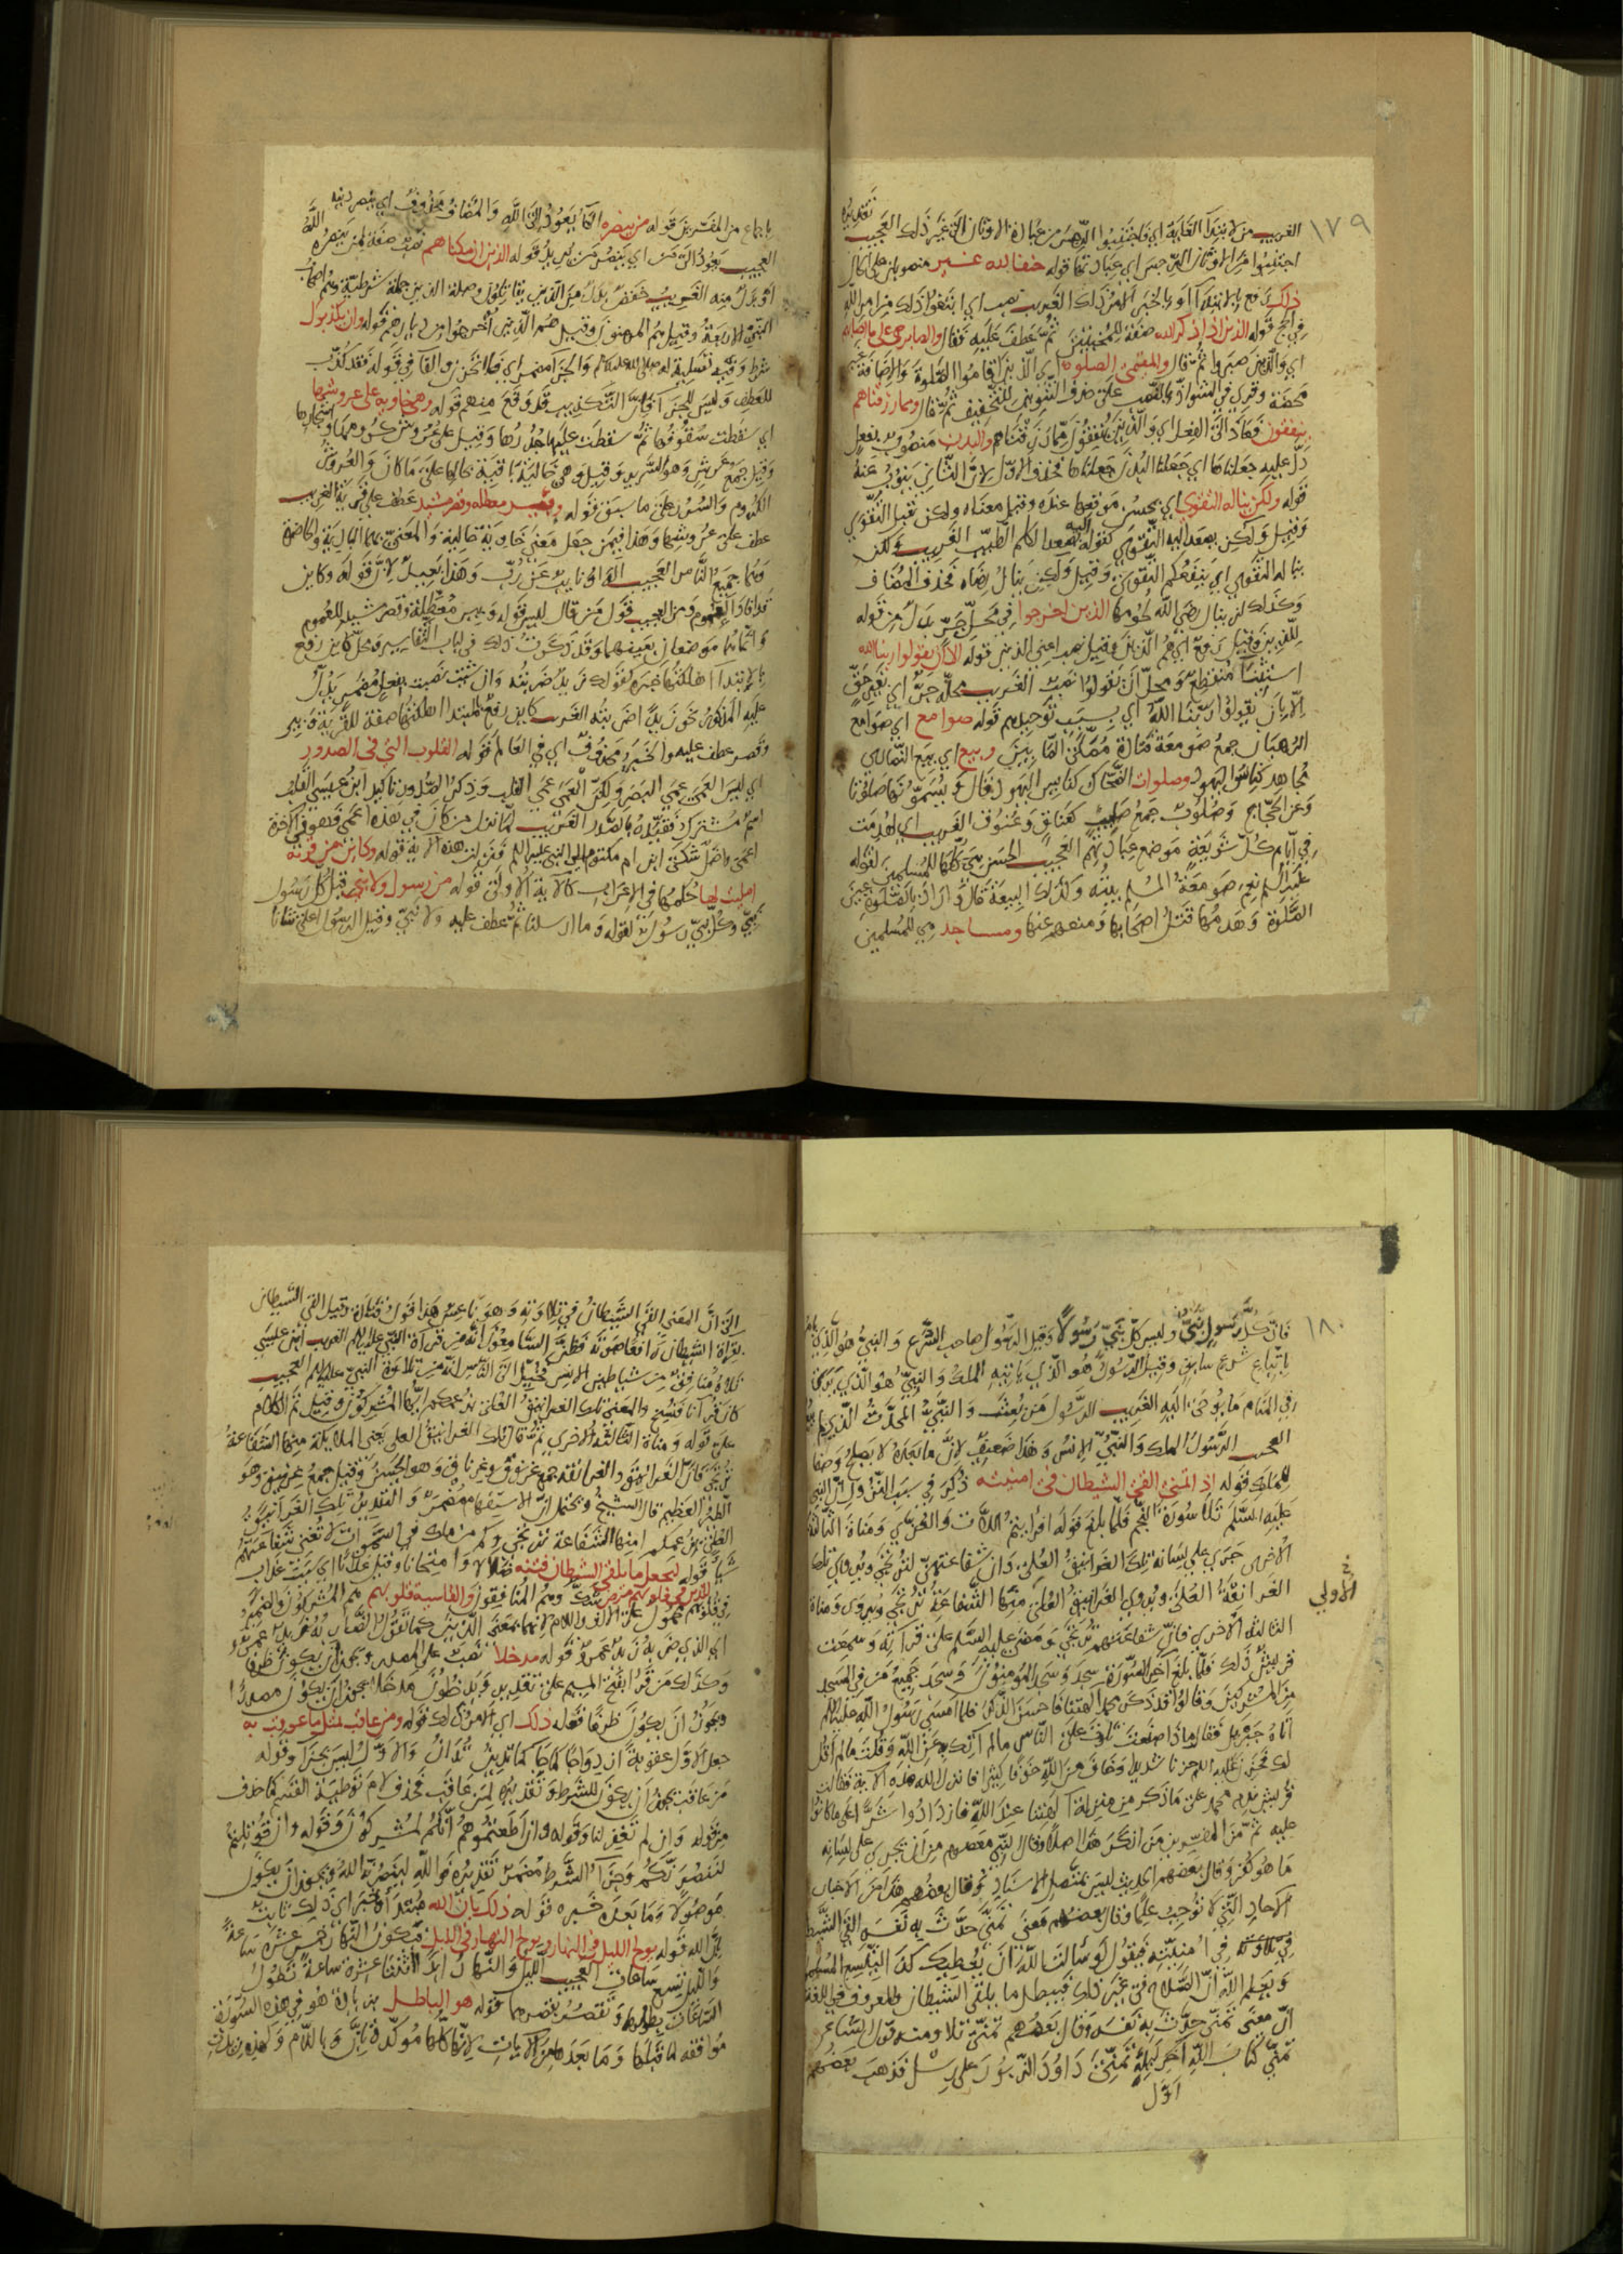 ١٧٩
الغريب من لابتداء الغاية اي فاجتنبوا الرجس من عبادة الاوثان العجيب
اجتنبوا من الاوثان الرجس اي عبادتها قوله حنفا لله غير منصوبان على الحال
ذلك رفع بالابتداء او بالخبر اي الامر ذلك الغريب نصب اي ابتغوا ذلك من امر الله
في الحج قوله الذين اذا ذكر الله صفة للمخبتين ثم عطف عليه فقال والصابرين على ما اصابهم
اي والذين صبروا ثم قال والمقيمي الصلوة اي الذين اقاموا الصلوة والاضافة غير
محضة وقرئ في الشواذ بالنصب على حذف النون للتخفيف ثم قال ومما رزقناهم
ينفقون فعاد الى الفعل اي والذين ينفقون مما رزقناهم والبدن منصوب بفعل
دل عليه جعلناها اي جعلنا البدن جعلناها فحذف الاول لان الثاني ينوب عنه
قوله ولكن يناله التقوي اي يحسن موقعها عنده وقيل معناه ولكن تقبل التقوي
وقيل ولكن يصعد اليه التقوي كقوله اليه يصعد الكلم الطيب الغريب ولكن
يناله التقوي اي ينفعكم التقوي وقيل ولكن ينال رضاه فحذف المضاف
وكذلك لن ينال رضي الله لحومها الذين اخرجوا في محل جر بدل من قوله
للذين وقيل رفع اي هم الذين وقيل نصب اعني الذين قوله الا ان يقولوا ربنا الله
استثنا منقطع ومحل ان يقولوا نصب الغريب محله جر اي بغير حق
الا بان يقولوا ربنا الله اي بسبب توحيدهم قوله صوامع اي صوامع
الرهبان جمع صومعة منارة مسكن الصابيين وبيع اي بيع النصاري
مجاهد كنايس اليهود وصلوات الضحاك كنايس اليهود قال ويسمونها صلوتا
وعن الحجاج وصلوب جمع صليب كعناق وعنوق الغريب اي لهدمت
في ايام كل شريعة موضع عبادتهم العجيب الحسن هي كلها للمسلمين لقوله
عليه السلم نعم صومعة المسلم بيته وكذلك البيعة قال واراد بالصلوة عين
الصلوة وهدمها قتل اصحابها ومنعهم عنها ومساجد وهي للمسلمين
باجماع من المفسرين قوله من ينصره الها يعود الى الله والمضاف محذوف اي ينصر دينه
العجيب يعود الى من اي ينصر من يريد قوله الذين ان مكناهم نصب صفة لمن ينصره الله
او بدل منه الغريب خفض بدل من الذين يقاتلون وصلة الذين جملة شرطية وهم اصحاب
النبي الاربعة وقيل هم المهاجرون وقيل هم الذين اخرجوا من ديارهم قوله وان يكذبوك
شرط وفيه تسلية له صلى الله عليه والجزا مضمر اي فلا تحزن والفا في قوله فقد كذبت
للعطف وليس للجزا لان التكذيب قد وقع منهم قوله وهي خاوية على عروشها
اي سقطت سقوفها ثم سقطت عليها جدرها وقيل على عروش كرومها واشجارها
وقيل جمع عرش وهو السرير وقيل وهي خالية باقية حالها على ما كان والعروش
الكروم والسقف على ما سبق قوله وبير معطله وقصر مشيد عطف على قرية الغريب
عطف على عروشها وهذا فيمن جعل معنى خاوية خالية والمعني بهما البادية والحاضرة
وهما جميع الناس العجيب الواو نايبة عن رب وهذا بعيد لان قوله وكاين
قد افاد العموم ومن العجيب قول من قال ليس قوله وبير معطلة وقصر مشيد للعموم
وانما هما موضعان بعينهما وقد ذكرت ذلك في لباب التفاسير ومحل كاين رفع
بالابتدا اهلكناها خبره كقولك زيد ضربته وان شئت نصبت بفعل مضمر يدل
عليه المذكور نحو زيدا ضربته الغريب كاين رفع بالمبتدا اهلكناها صفة للقرية وبير
وقصر عطف عليه والخبر محذوف اي في العالم قوله القلوب التي في الصدور
اي ليس العمى عمى البصر ولكن العمى عمى القلب وذكر الصدور تاكيد ابن عيسى القلب
اسم مشترك فقيده بالصدر الغريب لما نزل من كان في هذه اعمى فهو في الاخرة
اعمى واضل شكى ابن ام مكتوم الى النبي عليه السلم فنزلت هذه الاية قوله وكاين من قرية
امليت لها حكمها في الاعراب كالاية الاولى قوله من رسول ولا نبي قيل كل رسول
نبي وكل نبي رسول لقوله وما ارسلنا ثم عطف عليه ولا نبي وقيل الرسول اعلى شانا
١٨٠
فان كل رسول نبي وليس كل نبي رسولا وقيل الرسول صاحب الشرع والنبي هو الذي يامر
باتباع شرع سابق وقيل الرسول هو الذي ياتيه الملك والنبي هو الذي يري
في المنام ما يوحى اليه الغريب الرسول من بعث والنبي المحدث الذي
العجيب الرسول الملك والنبي الانس وهذا ضعيف لان ما بعده لا يصلح وصفا
للملك قوله اذا تمنى القى الشيطان في امنيته ذكر في سبب النزول ان النبي
عليه السلم تلا سورة النجم فلما بلغ قوله افرايتم اللات والعزي ومناة الثالثة
الاخرى جرى على لسانه تلك الغرانيق العلى وان شفاعتهن لترتجى ويروى تلك
الغرانقة العلى ويروى الغرانيق العلى منها الشفاعة ترتجى ويروى ومناة
الاولي
الثالثة الاخرى فان شفاعتهم ترتجى ومضى عليه السلم على قراته وسمعت
قريش ذلك فلما بلغ اخر السورة سجد وسجد المومنون وسجد جميع من في المسجد
من المشركين وقالوا قد ذكر محمد الهتنا فاحسن الذكر فلما امسى رسول الله عليه السلم
اتاه جبريل فقال ماذا صنعت تلوت على الناس مالم اتك به عن الله وقلت مالم اقل
لك فحزن عليه السلم حزنا شديدا وخاف من الله خوفا كثيرا فانزل الله هذه الاية فقالت
قريش ندم محمد على ما ذكر من منزلة الهتنا عند الله فازدادوا شرا على ما كانوا
عليه ثم من المفسرين من انكر هذا اصلا وقال النبي معصوم من ان يجري على لسانه
ما هو كفر وقال بعضهم الحديث ليس بمتصل الاسناد وقال بعضهم هذا من الاخبار
الاحاد التي لا توجب علما وقال بعضهم معنى تمنى حدث به نفسه القى الشيطان
في تلاوته في امنيته فيقول لو سالت الله ان يعطيك كذا ليتسع المسلمون
ويعلم الله ان الصلاح في غير ذلك فيبطل ما يلقي الشيطان والمعروف في اللغة
ان معنى تمنى حدث به نفسه وقال بعضهم تمنى تلا ومنه قول الشاعر
تمنى كتاب الله اخر ليله تمني داود الزبور على رسل فذهب بعضهم
الى ان المعنى القى الشيطان في تلاوته وهو ناعس هذا قول قتادة وقيل القى الشيطان
بقراة الشيطان رافعا صوته فظن السامعون انه من قراة النبي عليه السلم الغريب ابن عيسى
تلاه منافق من شياطين الانس فخيل الى الناس انه من تلاوة النبي عليه السلم العجيب
كان قرانا فنسخ والمعنى تلك الغرانيق العلى بزعمكم ايها المشركون وقيل تم الكلام
على قوله ومناة الثالثة الاخرى ثم قال تلك الغرانيق العلى يعني الملايكة منها الشفاعة
ترتجى قال الغرانيق والغرانقة جمع غرنوق وغرناق وهو الحسن وقيل جمع غرنيق وهو
الطير العظيم قال الشيخ ويحتمل ان الاستفهام مضمر والتقدير تلك الغرانيق
العلى بزعمكم امنها الشفاعة ترتجى وكم من ملك في السموات لا تغني شفاعتهم
شيا قوله ليجعل ما يلقي الشيطان فتنة ضلالا وامتحانا وقيل عذابا اي سبب عذاب
للذين في قلوبهم مرض شك وهم المنافقون والقاسية قلوبهم هم المشركون والضمير
في قلوبهم محمول على الالف واللام لانهما بمعنى الذين كما تقول الضارب زيد عمرو
اي الذي ضربه زيد عمرو قوله مدخلا نصب على المصدر ويجوز ان يكون ظرفا
وكذلك من قرا بفتح الميم على تقدير فيدخلون مدخلا يجوز ان يكون مصدرا
ويجوز ان يكون ظرفا قوله ذلك اي الامر ذلك قوله ومن عاقب بمثل ما عوقب به
جعل الاول عقوبة ازدواجا كما تدين تدان والاول ليس بجزا وقوله
من عاقب يجوز ان يكون للشرط وتقديره لمن عاقب فحذف لام توطية القسم كما حذف
من قوله وان لم تغفر لنا وقوله وان اطعتموهم انكم لمشركون وقوله وان قوتلتم
لننصرنكم وجزا الشرط مضمر تقديره والله لينصرنه الله ويجوز ان يكون
موصولا وما بعده خبره قوله ذلك بان الله مبتدا وخبر اي ذلك ثابت
بان الله قوله يولج الليل في النهار ويولج النهار في الليل فيكون النهار خمس عشرة ساعة
والليل تسع ساعات العجيب الليل والنهار ابدا اثنتا عشرة ساعة تطول
الساعات بطولها وتقصر بقصرها قوله هو الباطل بزيادة هو في هذه السورة
موافقه لما قبلها وما بعدها من الايات لانها كلها موكدة بان وباللام وكذلك